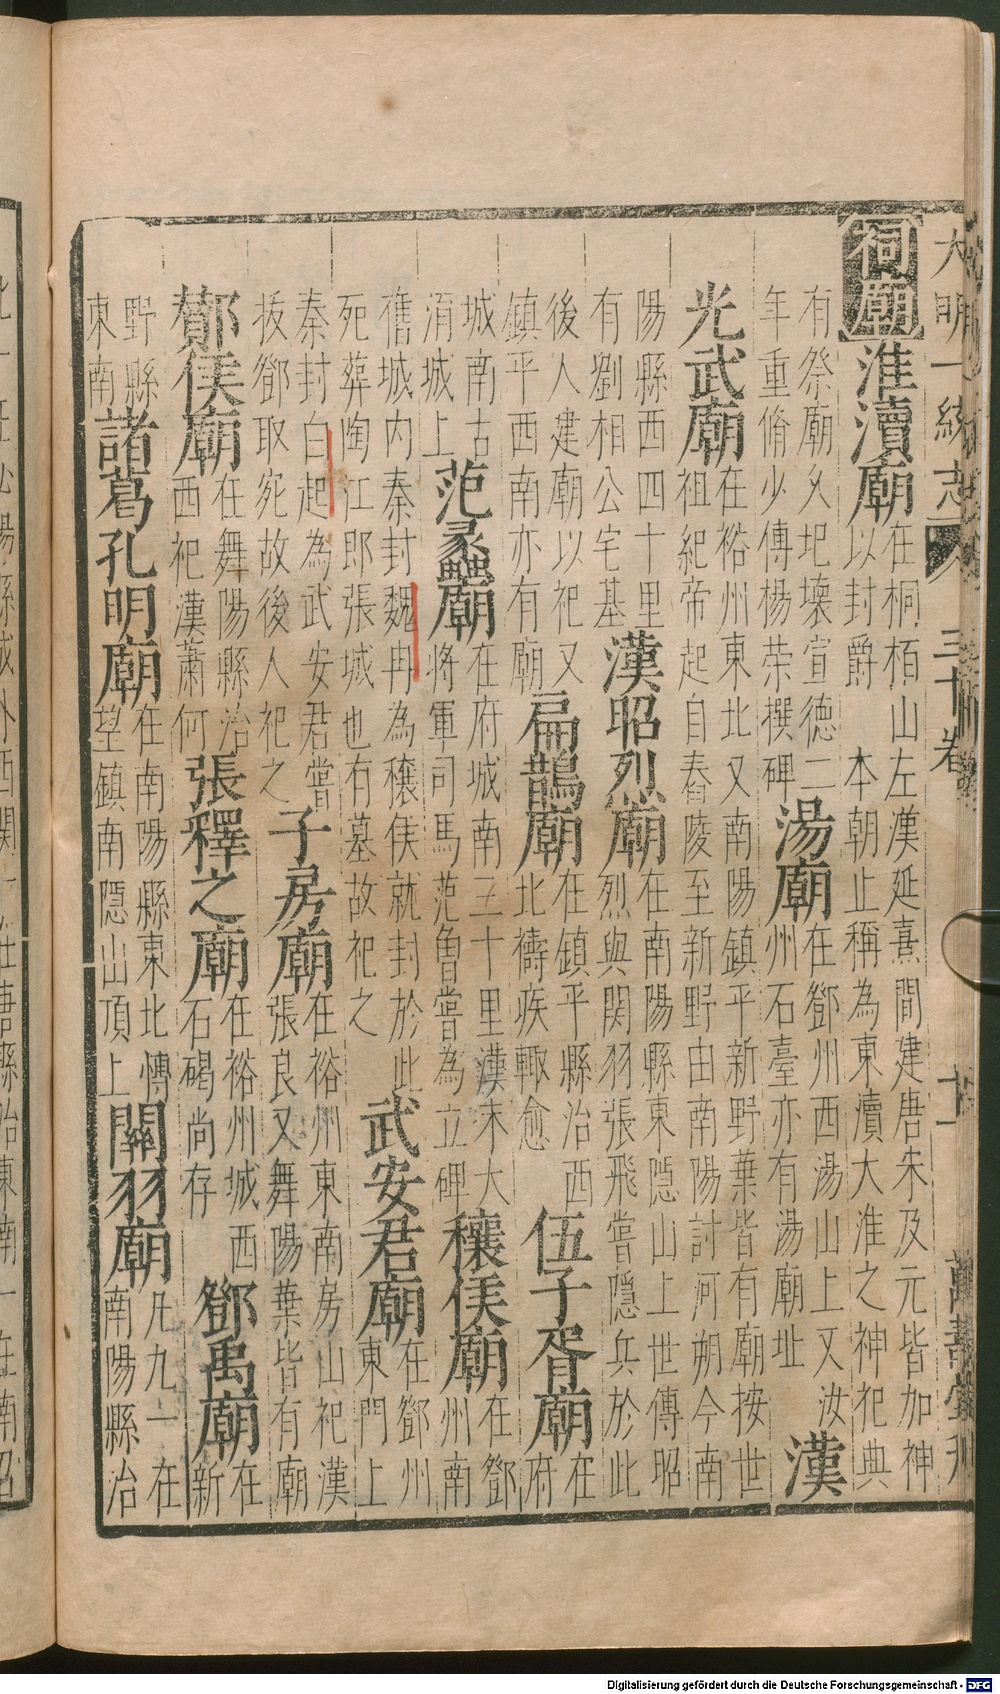 大明一統志 三十卷 十一 萬壽堂刊
祠廟
淮瀆廟
在桐栢山左漢延熹間建唐宋及元皆加神
以封爵 本朝止稱為東瀆大淮之神祀典
有祭廟乆圯壞宣德二
年重脩少傅楊榮撰碑
湯廟
在鄧州西湯山上又汝
州石臺亦有湯廟址
漢
光武廟
在裕州東北又南陽鎮平新野葉皆有廟按世
祖紀帝起自舂陵至新野由南陽討河朔今南
陽縣西四十里
有劉相公宅基
漢昭烈廟
在南陽縣東隠山上世傳昭
烈與関羽張飛嘗隱兵於此
後人建廟以祀又
鎮平西南亦有廟
扁鵲廟
在鎮平縣治西
北禱疾輙愈
伍子胥廟
在
府
城南古
淯城上
范蠡廟
在府城南三十里漢末大
將軍司馬范曾嘗為立碑
穰侯廟
在鄧
州南
舊城内秦封魏冉為穰侯就封於此
死葬陶江郎張城也有墓故祀之
武安君廟
在鄧州
東門上
秦封白起為武安君嘗
拔鄧取宛故後人祀之
子房廟
在裕州東南房山祀漢
張良又舞陽葉皆有廟
酇侯廟
在舞陽縣治
西祀漢蕭何
張釋之廟
在裕州城西
石碣尚存
鄧禹廟
在
新
野縣
東南
諸葛孔明廟
在南陽縣東北博
望鎮南隱山頂上
關羽廟
凡九一在
南陽縣治
Digitalisierung gefördert durch die Deutsche Forschungsgemeinschaft - DFG